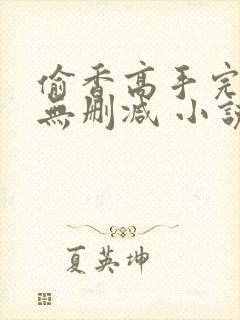 偷香高手完
無刪減 小說
夏英坤